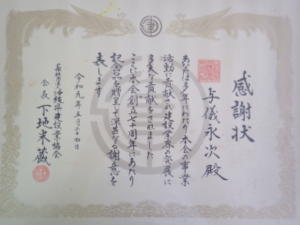 感謝状
与儀永次殿
あなたは多年にわたり本会の事業
活動に貢献され建設業界の発展に
多大な貢献をされました
ここに本会創立七十周年にあたり
記念品を贈呈して深甚なる謝意を
表します
令和元年五月二十四日
沖縄県建設業協会
会長 下地米蔵